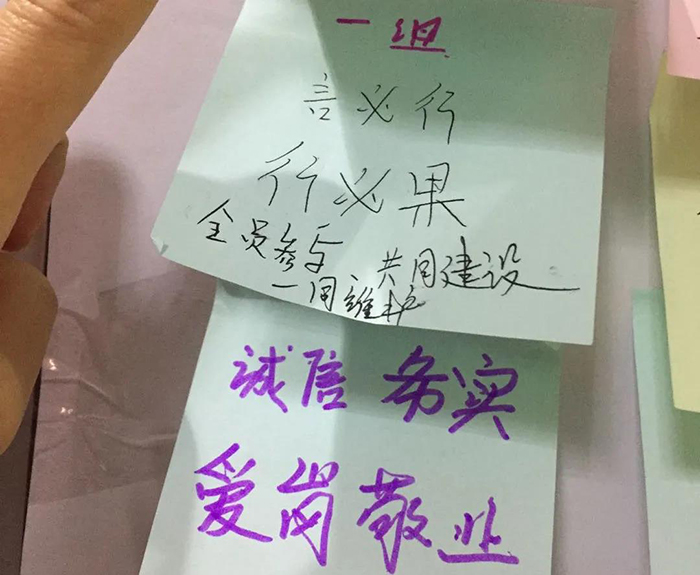 一组
言必行
行必果
全员参与 共同建设
一同维护
诚信 务实
爱岗敬业